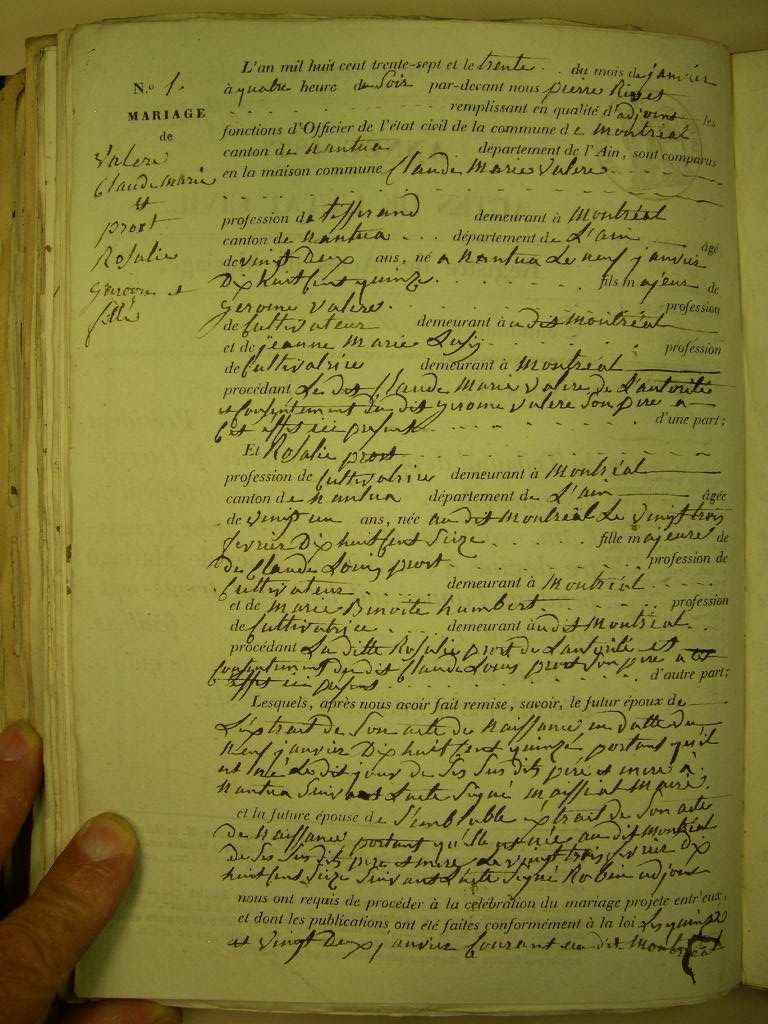 N.o 1.
MARIAGE
de
Valere
Claude Marie
et
prost
Rosalie
Garçon et
fille
L'an mil huit cent trente-sept et le trente . . du mois de janvier
à quatre heure du Soir par-devant nous pierre
remplissant en qualité d'adjoint les
fonctions d'Officier de l'état civil de la commune de Montréal
canton de Nantua département de l'Ain, sont comparus
en la maison commune Claude Marie Valere
profession de tisserand demeurant à Montréal
canton de Nantua département de L'ain âgé
de vingt Deux ans, né a Nantua Le neuf janvier
Dix huit Cent quinze fils majeur de
Gerome Valere profession
de Cultivateur demeurant audit Montréal
et de jeanne Marie profession
de Cultivatrice demeurant à Montréal
procédant Le dit Claude Marie Valere de L'autorité
et Consentement du dit gerome Valere Son pere a
Cet effet ici présent d'une part;
Et Rosalie prost
profession de Cultivatrice demeurant à Montréal
canton de Nantua département de L'ain âgée
de vingt un ans, née audit Montréal Le vingt trois
fevrier Dix huit Cent Seize fille majeure de
de Claude Louis prost profession de
Cultivateur demeurant à Montréal
et de Marie Benoite humbert profession
de Cultivatrice demeurant audit Montréal
procédant La ditte Rosalie prost de L'autorité et
Consentement du dit Claude Louis prost Son pere a cet
effet ici présent d'autre part;
Lesquels, après nous avoir fait remise, savoir, le futur époux de
L'extrait de Son acte de Naissance en datte du
Neuf janvier Dix huit Cent quinze portant qu'il
est né Le dit jour de Ses Sus dits pére et mere à
Nantua Suivant L'acte Signé Maissiat Maire.
et la future épouse de S'emblable éxtrait de Son acte
de Naissance portant qu'elle est née audit Montréal
de Ses Sus dits pere et mere Le vingt trois fevrier Dix
huit Cent Seize Suivant L'acte Signé Robin adjoint
nous ont requis de procéder à la célébration du mariage projeté entr'eux,
et dont les publications ont été faites conformément à la loi Les quinze
et vingt Deux janvier Courant au dit Montréal